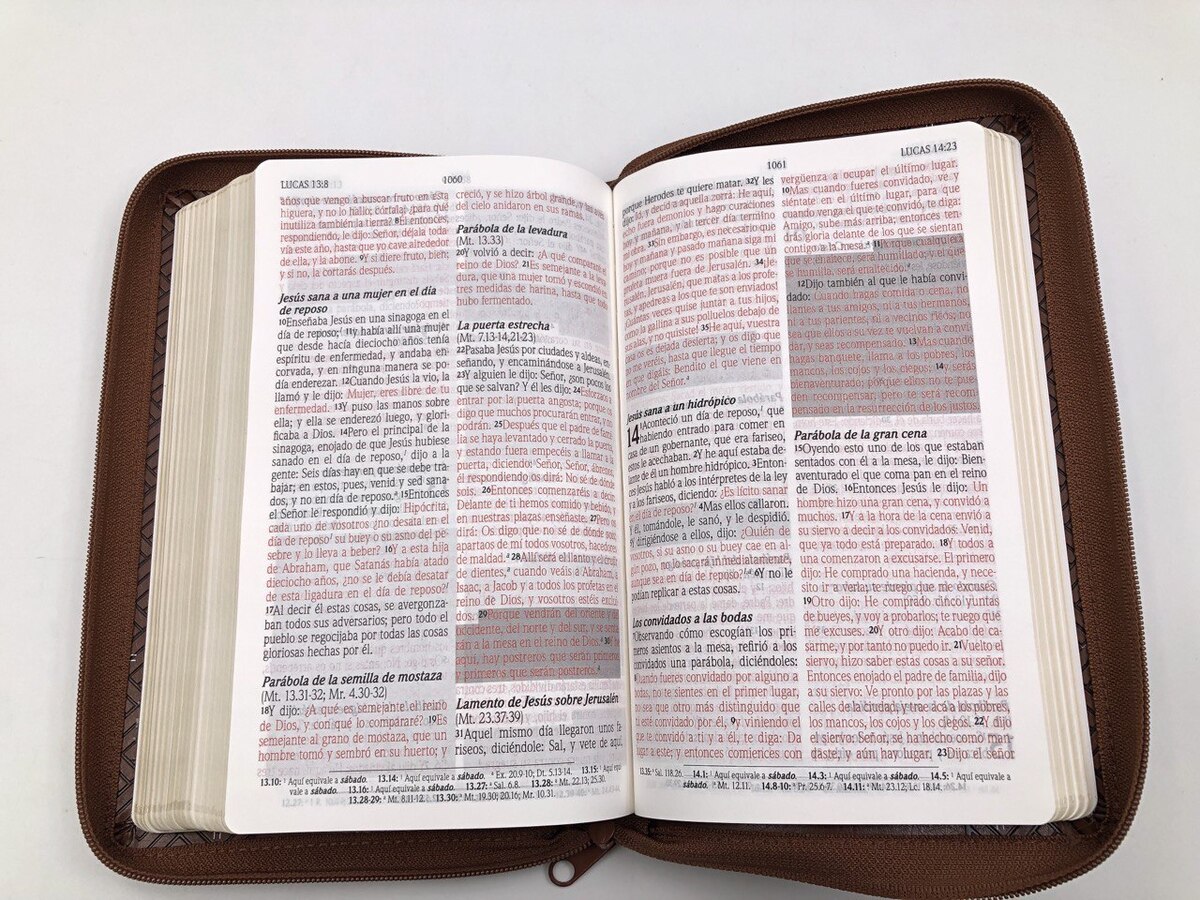 LUCAS 13:8
1060
años que vengo a buscar fruto en esta
higuera, y no lo hallo; córtala; ¿para qué
inutiliza también la tierra? 8Él entonces,
respondiendo, le dijo: Señor, déjala toda-
vía este año, hasta que yo cave alrededor
de ella, y la abone. 9Y si diere fruto, bien;
y si no, la cortarás después.
Jesús sana a una mujer en el día
de reposo
10Enseñaba Jesús en una sinagoga en el
día de reposo; 11y había allí una mujer
que desde hacía dieciocho años tenía
espíritu de enfermedad, y andaba en-
corvada, y en ninguna manera se po-
día enderezar. 12Cuando Jesús la vio, la
llamó y le dijo: Mujer, eres libre de tu
enfermedad. 13Y puso las manos sobre
ella; y ella se enderezó luego, y glori-
ficaba a Dios. 14Pero el principal de la
sinagoga, enojado de que Jesús hubiese
sanado en el día de reposo, dijo a la
gente: Seis días hay en que se debe tra-
bajar; en éstos, pues, venid y sed sana-
dos, y no en día de reposo. 15Entonces
el Señor le respondió y dijo: Hipócrita,
cada uno de vosotros ¿no desata en el
día de reposo su buey o su asno del pe-
sebre y lo lleva a beber? 16Y a esta hija
de Abraham, que Satanás había atado
dieciocho años, ¿no se le debía desatar
de esta ligadura en el día de reposo?
17Al decir él estas cosas, se avergonza-
ban todos sus adversarios; pero todo el
pueblo se regocijaba por todas las cosas
gloriosas hechas por él.
Parábola de la semilla de mostaza
(Mt. 13.31-32; Mr. 4.30-32)
18Y dijo: ¿A qué es semejante el reino
de Dios, y con qué lo compararé? 19Es
semejante al grano de mostaza, que un
hombre tomó y sembró en su huerto; y
creció, y se hizo árbol grande, y las aves
del cielo anidaron en sus ramas.
Parábola de la levadura
(Mt. 13.33)
20Y volvió a decir: ¿A qué compararé el
reino de Dios? 21Es semejante a la leva-
dura, que una mujer tomó y escondió en
tres medidas de harina, hasta que todo
hubo fermentado.
La puerta estrecha
(Mt. 7.13-14,21-23)
22Pasaba Jesús por ciudades y aldeas, en-
señando, y encaminándose a Jerusalén.
23Y alguien le dijo: Señor, ¿son pocos los
que se salvan? Y él les dijo: 24Esforzaos a
entrar por la puerta angosta; porque os
digo que muchos procurarán entrar, y no
podrán. 25Después que el padre de fami-
lia se haya levantado y cerrado la puerta,
y estando fuera empecéis a llamar a la
puerta, diciendo: Señor, Señor, ábrenos,
él respondiendo os dirá: No sé de dónde
sois. 26Entonces comenzaréis a decir:
Delante de ti hemos comido y bebido, y
en nuestras plazas enseñaste. 27Pero os
dirá: Os digo que no sé de dónde sois;
apartaos de mí todos vosotros, hacedores
de maldad. 28Allí será el llanto y el crujir
de dientes, cuando veáis a Abraham, a
Isaac, a Jacob y a todos los profetas en el
reino de Dios, y vosotros estéis exclui-
dos. 29Porque vendrán del oriente y del
occidente, del norte y del sur, y se senta-
rán a la mesa en el reino de Dios. 30Y he
aquí, hay postreros que serán primeros,
y primeros que serán postreros.
Lamento de Jesús sobre Jerusalén
(Mt. 23.37-39)
31Aquel mismo día llegaron unos fa-
riseos, diciéndole: Sal, y vete de aquí,
13.10: Aquí equivale a sábado. 13.14: Aquí equivale a sábado. Ex. 20.9-10; Dt. 5.13-14. 13.15: Aquí equi-
vale a sábado. 13.16: Aquí equivale a sábado. 13.27: Sal. 6.8. 13.28: Mt. 22.13; 25.30.
13.28-29: Mt. 8.11-12. 13.30: Mt. 19.30; 20.16; Mr. 10.31.
1061
LUCAS 14:23
porque Herodes te quiere matar. 32Y les
dijo: Id, y decid a aquella zorra: He aquí,
echo fuera demonios y hago curaciones
hoy y mañana, y al tercer día termino
mi obra. 33Sin embargo, es necesario que
hoy y mañana y pasado mañana siga mi
camino; porque no es posible que un
profeta muera fuera de Jerusalén. 34¡Je-
rusalén, Jerusalén, que matas a los profe-
tas, y apedreas a los que te son enviados!
¡Cuántas veces quise juntar a tus hijos,
como la gallina a sus polluelos debajo de
sus alas, y no quisiste! 35He aquí, vuestra
casa os es dejada desierta; y os digo que
no me veréis, hasta que llegue el tiempo
en que digáis: Bendito el que viene en
nombre del Señor.
Jesús sana a un hidrópico
14 1Aconteció un día de reposo, que
habiendo entrado para comer en
casa de un gobernante, que era fariseo,
éstos le acechaban. 2Y he aquí estaba de-
lante de él un hombre hidrópico. 3Enton-
ces Jesús habló a los intérpretes de la ley
y a los fariseos, diciendo: ¿Es lícito sanar
en el día de reposo? 4Mas ellos callaron.
Y él, tomándole, le sanó, y le despidió.
5Y dirigiéndose a ellos, dijo: ¿Quién de
vosotros, si su asno o su buey cae en al-
gún pozo, no lo sacará inmediatamente,
aunque sea en día de reposo? 6Y no le
podían replicar a estas cosas.
Los convidados a las bodas
7Observando cómo escogían los pri-
meros asientos a la mesa, refirió a los
convidados una parábola, diciéndoles:
8Cuando fueres convidado por alguno a
bodas, no te sientes en el primer lugar,
no sea que otro más distinguido que
tú esté convidado por él, 9y viniendo el
que te convidó a ti y a él, te diga: Da
lugar a éste; y entonces comiences con
vergüenza a ocupar el último lugar.
10Mas cuando fueres convidado, ve y
siéntate en el último lugar, para que
cuando venga el que te convidó, te diga:
Amigo, sube más arriba; entonces ten-
drás gloria delante de los que se sientan
contigo a la mesa. 11Porque cualquiera
que se enaltece, será humillado; y el que
se humilla, será enaltecido.
12Dijo también al que le había convi-
dado: Cuando hagas comida o cena, no
llames a tus amigos, ni a tus hermanos,
ni a tus parientes, ni a vecinos ricos; no
sea que ellos a su vez te vuelvan a convi-
dar, y seas recompensado. 13Mas cuando
hagas banquete, llama a los pobres, los
mancos, los cojos y los ciegos; 14y serás
bienaventurado; porque ellos no te pue-
den recompensar, pero te será recom-
pensado en la resurrección de los justos.
Parábola de la gran cena
15Oyendo esto uno de los que estaban
sentados con él a la mesa, le dijo: Bien-
aventurado el que coma pan en el reino
de Dios. 16Entonces Jesús le dijo: Un
hombre hizo una gran cena, y convidó a
muchos. 17Y a la hora de la cena envió a
su siervo a decir a los convidados: Venid,
que ya todo está preparado. 18Y todos a
una comenzaron a excusarse. El primero
dijo: He comprado una hacienda, y nece-
sito ir a verla; te ruego que me excuses.
19Otro dijo: He comprado cinco yuntas
de bueyes, y voy a probarlos; te ruego que
me excuses. 20Y otro dijo: Acabo de ca-
sarme, y por tanto no puedo ir. 21Vuelto el
siervo, hizo saber estas cosas a su señor.
Entonces enojado el padre de familia, dijo
a su siervo: Ve pronto por las plazas y las
calles de la ciudad, y trae acá a los pobres,
los mancos, los cojos y los ciegos. 22Y dijo
el siervo: Señor, se ha hecho como man-
daste, y aún hay lugar. 23Dijo el señor
13.35: Sal. 118.26. 14.1: Aquí equivale a sábado. 14.3: Aquí equivale a sábado. 14.5: Aquí equivale a
sábado. Mt. 12.11. 14.8-10: Pr. 25.6-7. 14.11: Mt. 23.12; Lc. 18.14.